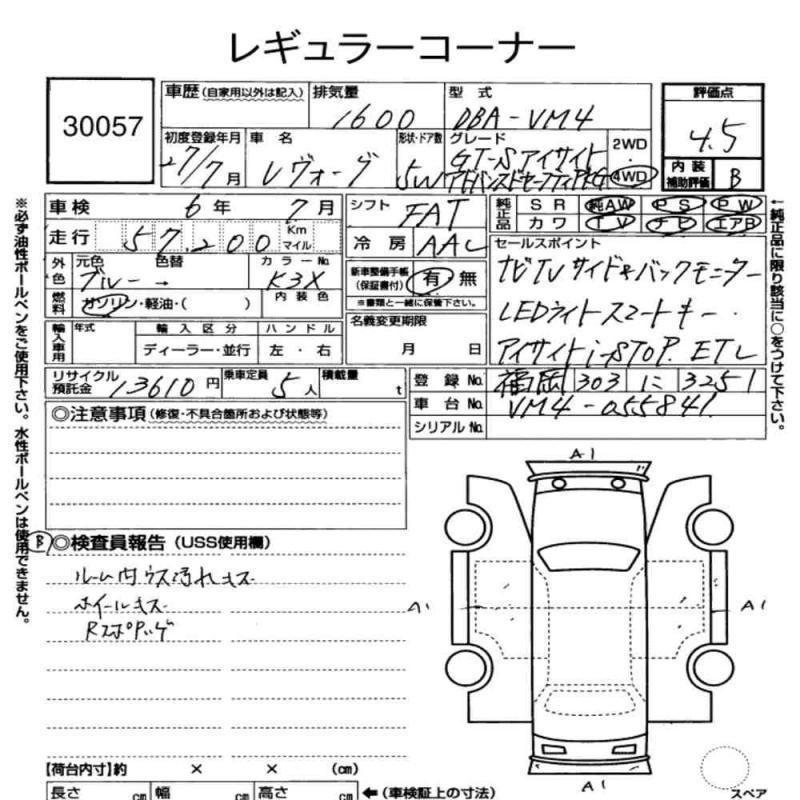 レギュラーコーナー
30057
車歴 (自家用以外は記入) 排気量 1600 型式 DBA-VM4
初度登録年月 27/7月 車名 レヴォーグ 形状・ドア数 5W グレード GT-Sアイサイト 2WD 4WD
評価点 4.5
内装補助評価 B
車検 6年 7月 シフト FAT
純正品 SR 純AW PS PW
カワ TV ナビ エアB
走行 57,200 Km マイル 冷房 AAC
セールスポイント
外色 元色 ブルー 色替 → カラーNo K3X
新車整備手帳(保証書付) 有・無
※書類と一緒に保管下さい。
ナビTVサイド&バックモニター
燃料 ガソリン・軽油・( ) 内装色
LEDライトスマートキー
輸入車用 年式 輸入区分 ハンドル
ディーラー・並行 左・右
名義変更期限 月 日
アイサイト i-STOP. ETC
リサイクル預託金 13610円 乗車定員 5人 積載量 t
登録No. 福岡 303 に 3251
車台No. VM4-055841
シリアルNo.
◎注意事項 (修復・不具合箇所および状態等)
B ◎検査員報告 (USS使用欄)
ルーム内ウス汚れキズ
ホイールキズ
A1
A1
A1
A1
【荷台内寸】約 × × (㎝)
長さ ㎝ 幅 ㎝ 高さ ㎝ ←(車検証上の寸法)
スペア
※必ず油性ボールペンをご使用下さい。水性ボールペンは使用できません。
←純正品に限り該当に○をつけて下さい。